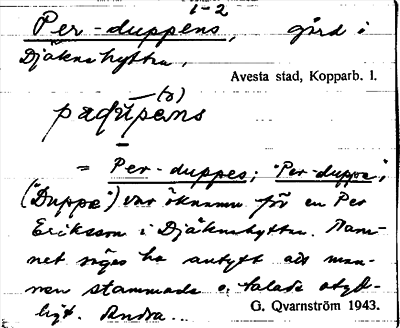 1-2
Per-duppens, gård i
Djäknehyttan,
Avesta stad, Kopparb. l.
(r)
= Per-duppes; "Per-duppe",
("Duppe") var öknamn för en Per
Eriksson i Djäknehyttan. Nam-
net säges ha antytt att man-
nen stammade o. talade otyd-
ligt. Andra...
G. Qvarnström 1943.